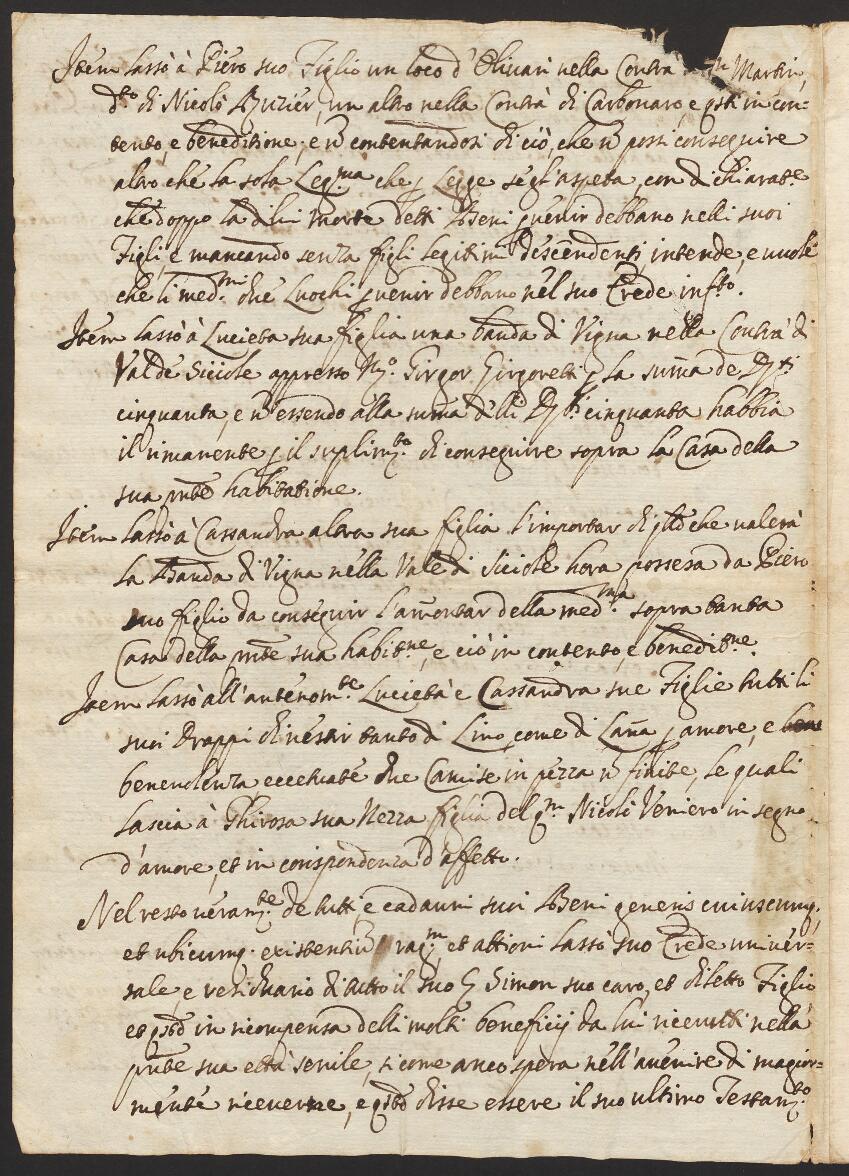 Item lassò à Piero suo Figlio un loco d'Olivari nella Contra Martin,
dto di Nicolò Buzier, un altro nella Contrà di Carbonaro, e qsti in con=
tento, e beneditione; e nō contentandosi di ciò, che nō possi conseguire
altro che la sola Legma che p Legge segl'aspeta, con dichiarate
che doppo la di lui morte detti Beni pvenir debbano nelli suoi
Figli, e mancando senza figli legitimi descendenti, intende, e vuole
che li medmi due Luochi pvenir debbano nel suo Erede infto.
Item lassò à Lucieta sua figlia una banda di Vigna nella Contrà di
Val de Siciole appresso Mo. Girgor Girgoretti p la summa de Dti
cinquanta, e nō essendo alla summa delli Dti cinquanta habbia
il rimanente p il suplimto. di conseguire sopra la Casa della
sua pnte habitatione.
Item lassò à Cassandra altra sua figlia l'importar di qto che valerà
la Banda di Vigna nella Vale di Siciole hora possesa da Piero
suo figlio da conseguir l'amontar della medma sopra tanta
Casa della pnte sua habitne, e ciò in contento, e beneditne.
Item lassò all'antenomte Lucieta e Cassandra sue Figlie tutti li
suoi Drappi di vestir tanto di Lino, come di Lana p amore, e
benevolenza, eccettuate due Camise in pezza nō finite, le quali
lascia à Ghirosa sua Nezza figlia del qm Nicolò Veniero in segno
d'amore, et in corispondenza d'affetto.
Nel resto veramte de tutti, e cadauni suoi Beni generis cuiuscumq.
et ubicumq. existentiū ragm, et attioni lassò suo Erede univer=
sale, e residuario di tutto il suo S Simon suo caro, et diletto Figlio
et qsto in ricompensa delli molti beneficij da lui ricevuti nella
pnte sua età senile, si come anco spera nell'avenire di magior=
mente riceverne, e qsto disse essere il suo ultimo Testamto